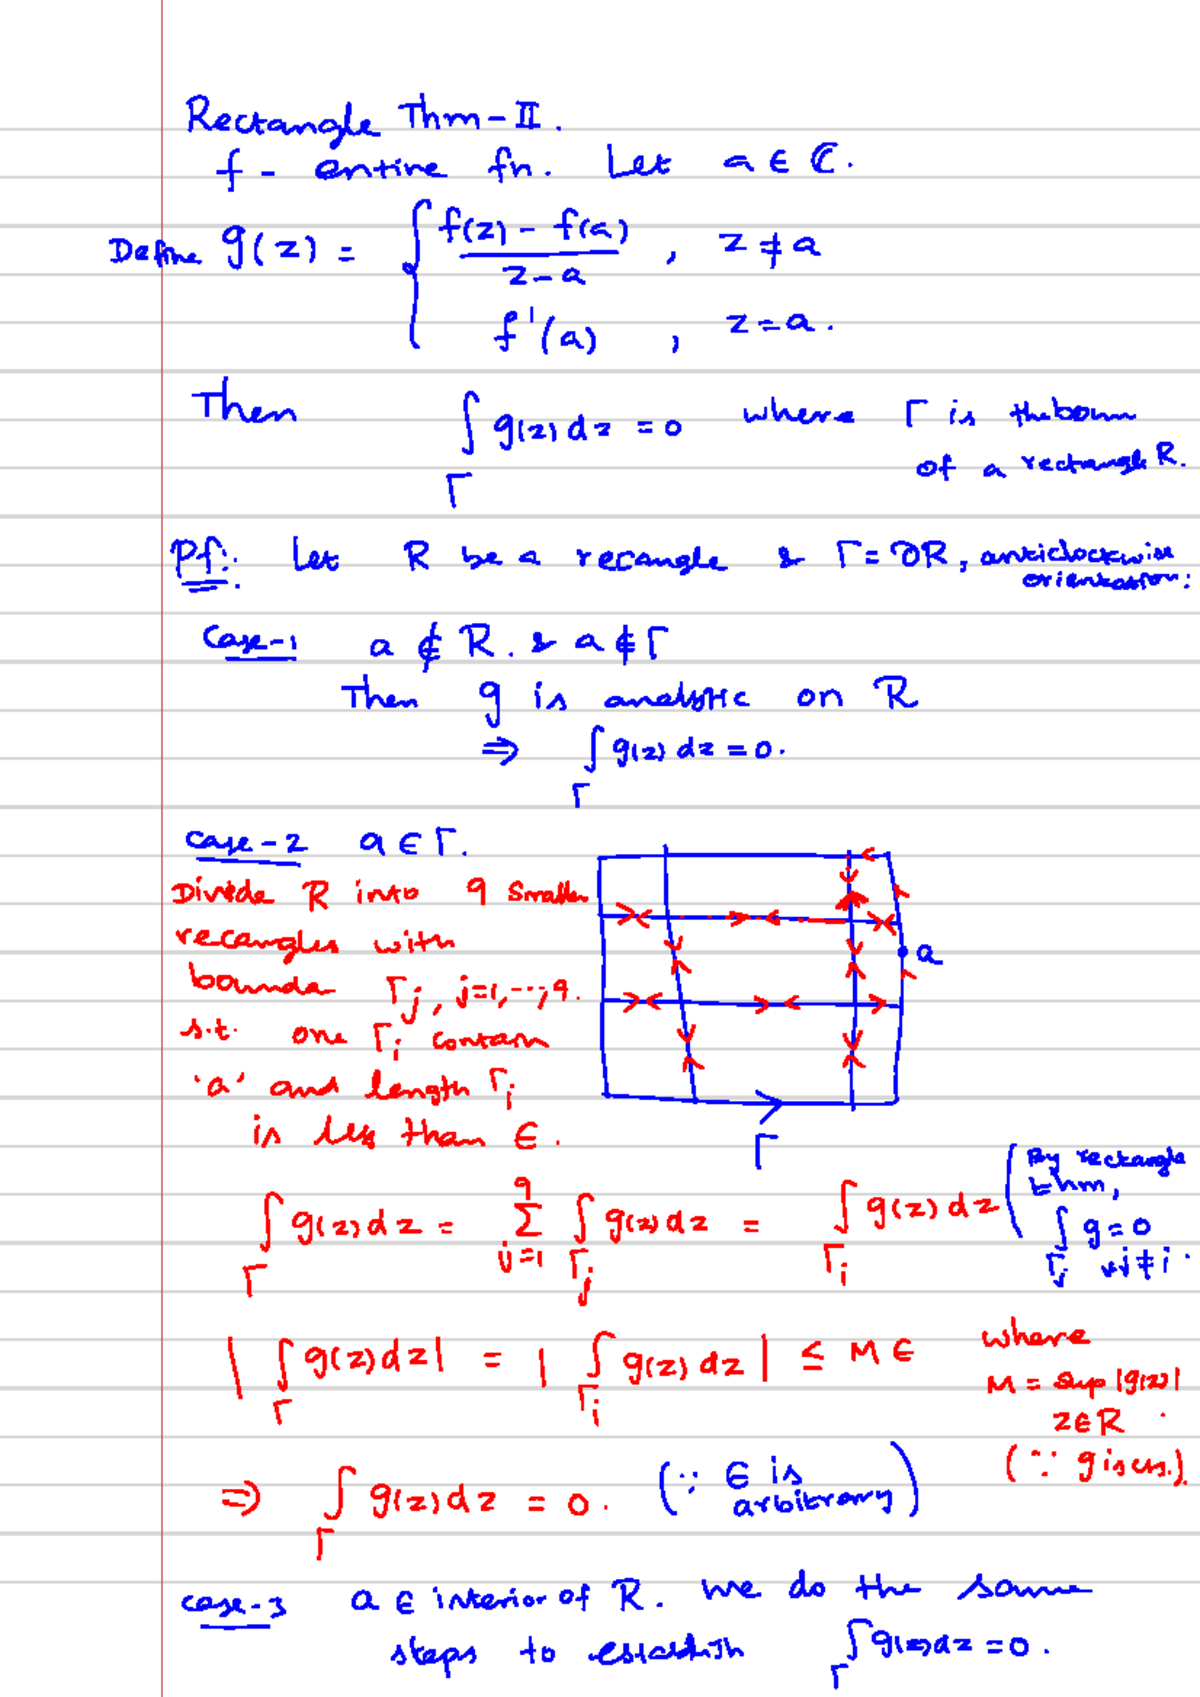 Rectangle Thm-II.
f - entire fn. Let a ∈ ℂ.
Define g(z) = { f(z) - f(a) / z-a , z ≠ a
f'(a) , z = a.
Then ∫_Γ g(z) dz = 0 where Γ is the boun
of a rectangle R.
Pf:. Let R be a recangle & Γ = ∂R, anticlockwise
orientation:
Case-1 a ∉ R. & a ∉ Γ
Then g is analytic on R
⇒ ∫_Γ g(z) dz = 0.
Case-2 a ∈ Γ.
Divide R into 9 Smaller
recangles with
bounda Γ_j, j=1,--,9.
s.t. one Γ_i contain
'a' and length Γ_i
is less than ∈.
a
Γ
∫_Γ g(z) dz = Σ_{j=1}^{9} ∫_{Γ_j} g(z) dz = ∫_{Γ_i} g(z) dz
(By rectangle
thm,
∫_{Γ_j} g = 0
∀ j ≠ i.
|∫_Γ g(z) dz| = |∫_{Γ_i} g(z) dz| ≤ M ∈ where
M = Sup |g(z)|
z ∈ R .
(∵ g is cts.).
⇒ ∫_Γ g(z) dz = 0. (∵ ∈ is
arbitrary)
case-3 a ∈ interior of R. We do the same
steps to establish ∫_Γ g(z) dz = 0.